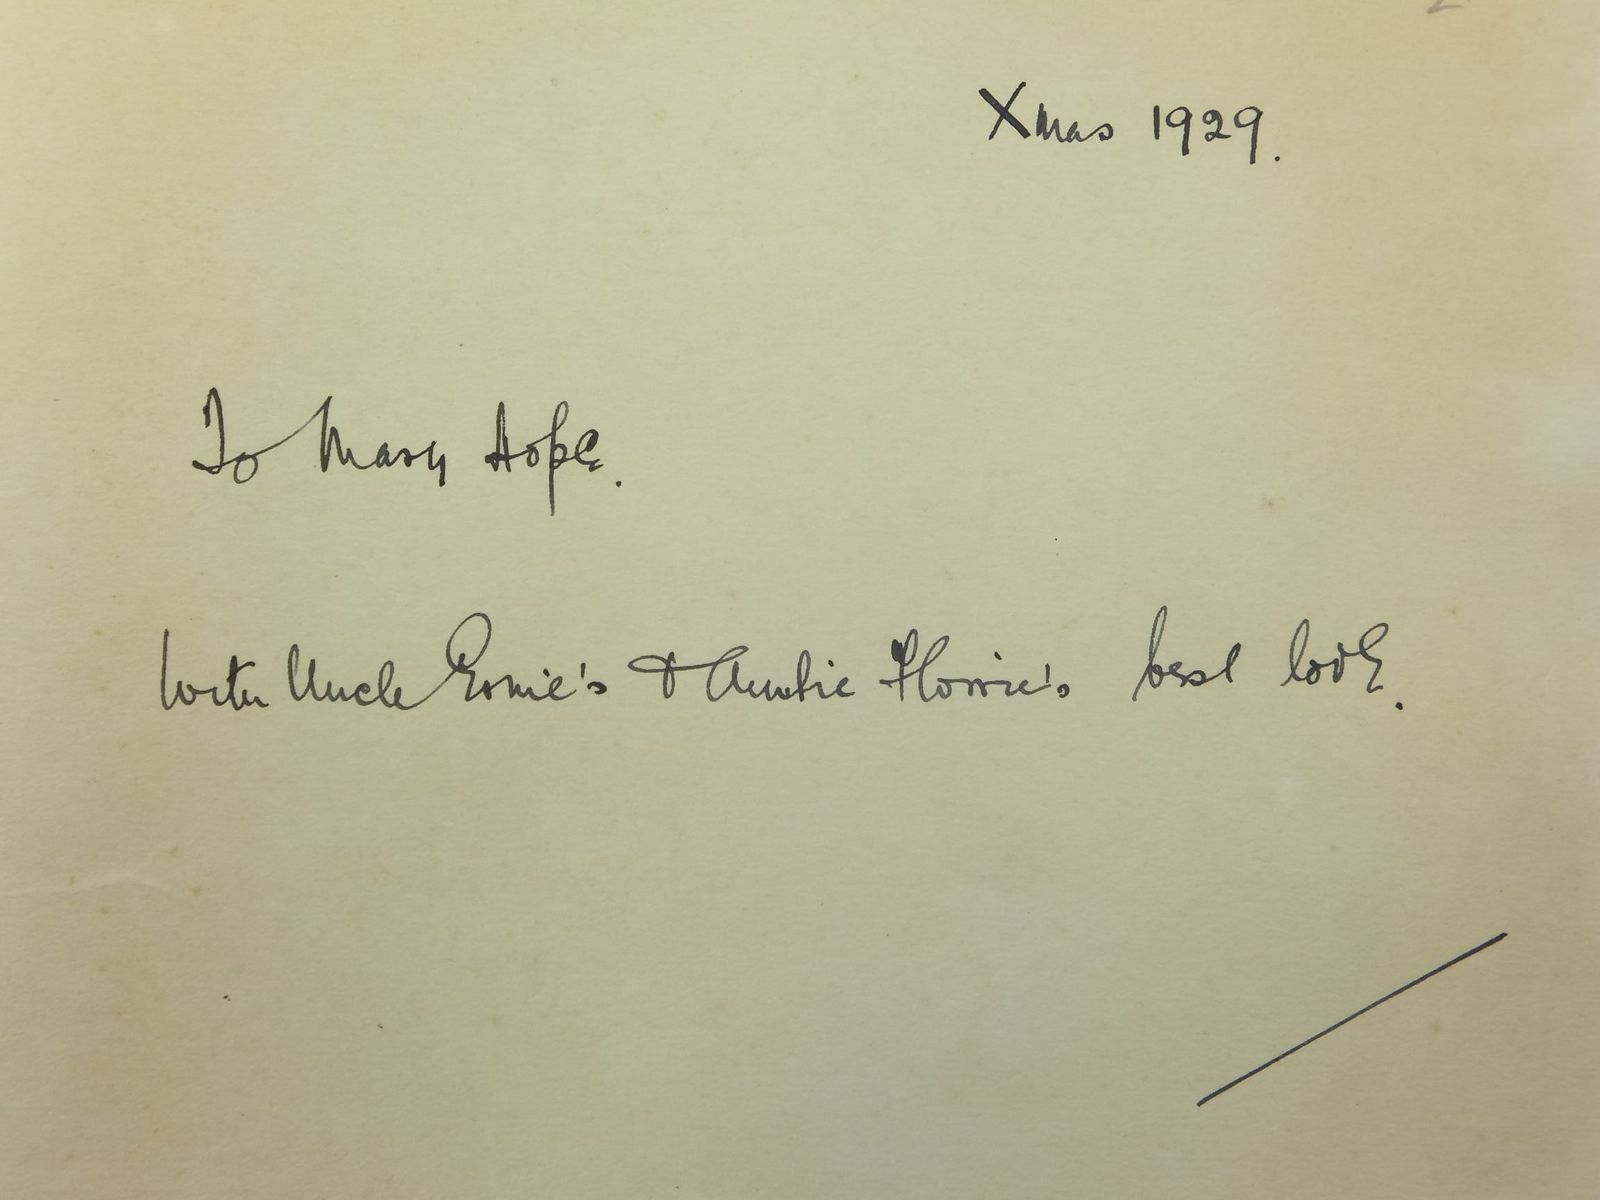 Xmas 1929.
To Mary Hope.
With Uncle Ernie's & Auntie Florrie's best love.